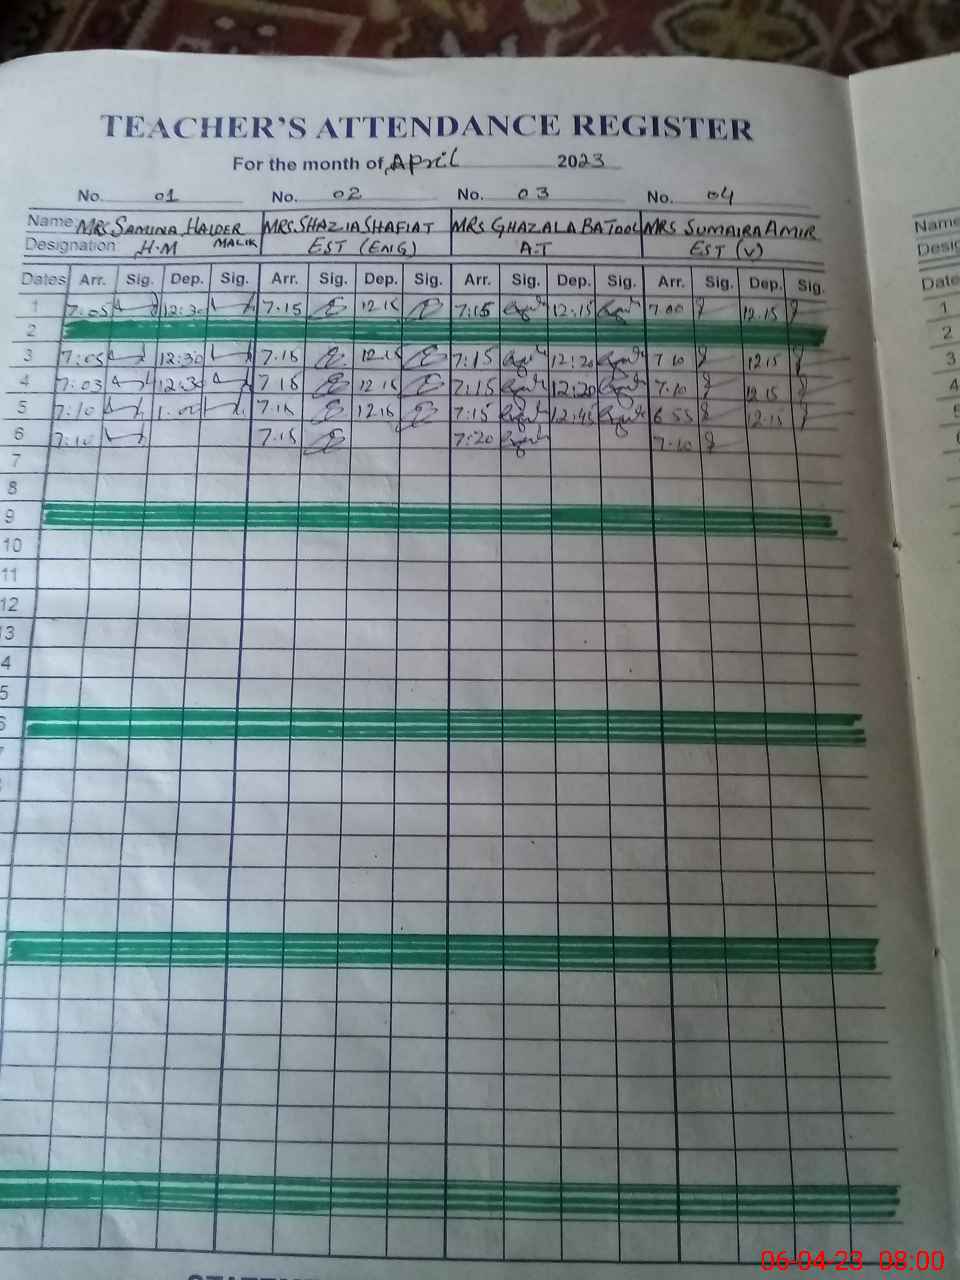 TEACHER'S ATTENDANCE REGISTER
For the month of April 2023
No. 01 No. 02 No. 03 No. 04
Name MRS SAMINA HAIDER MRS. SHAZIA SHAFIAT MRS GHAZALA BATOOL MRS SUMAIRA AMIR Name
Designation H.M MALIK EST (ENG) A.T EST (V) Desig
Dates Arr. Sig. Dep. Sig. Arr. Sig. Dep. Sig. Arr. Sig. Dep. Sig. Arr. Sig. Dep. Sig. Date
1 7.05 12:30 7.15 12.15 7:15 12:15 7.00 12.15 1
2 2
3 7:05 12:30 7.15 12.15 7:15 12:20 7 10 12.15 3
4 7:03 12:30 7.15 12.15 7:15 12:20 7.10 12.15 4
5 7:10 1.00 7.15 12.15 7:15 12:45 6 55 12.15 5
6 7:10 7.15 7:20 7.10
7
8
9
10
11
12
13
4
5
6
7
06-04-23 08:00